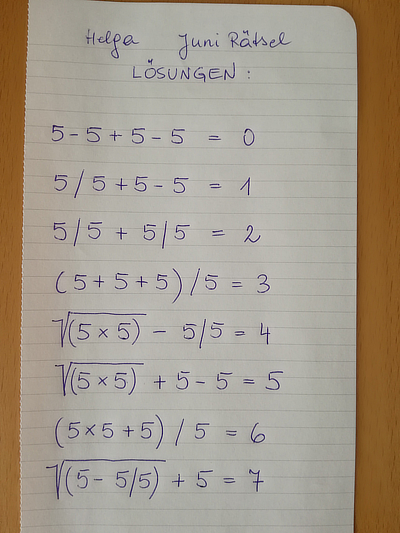 Helga Juni Rätsel
LÖSUNGEN :
5 - 5 + 5 - 5 = 0
5 / 5 + 5 - 5 = 1
5 / 5 + 5 / 5 = 2
(5 + 5 + 5) / 5 = 3
√(5 × 5) - 5 / 5 = 4
√(5 × 5) + 5 - 5 = 5
(5 × 5 + 5) / 5 = 6
√(5 - 5/5) + 5 = 7